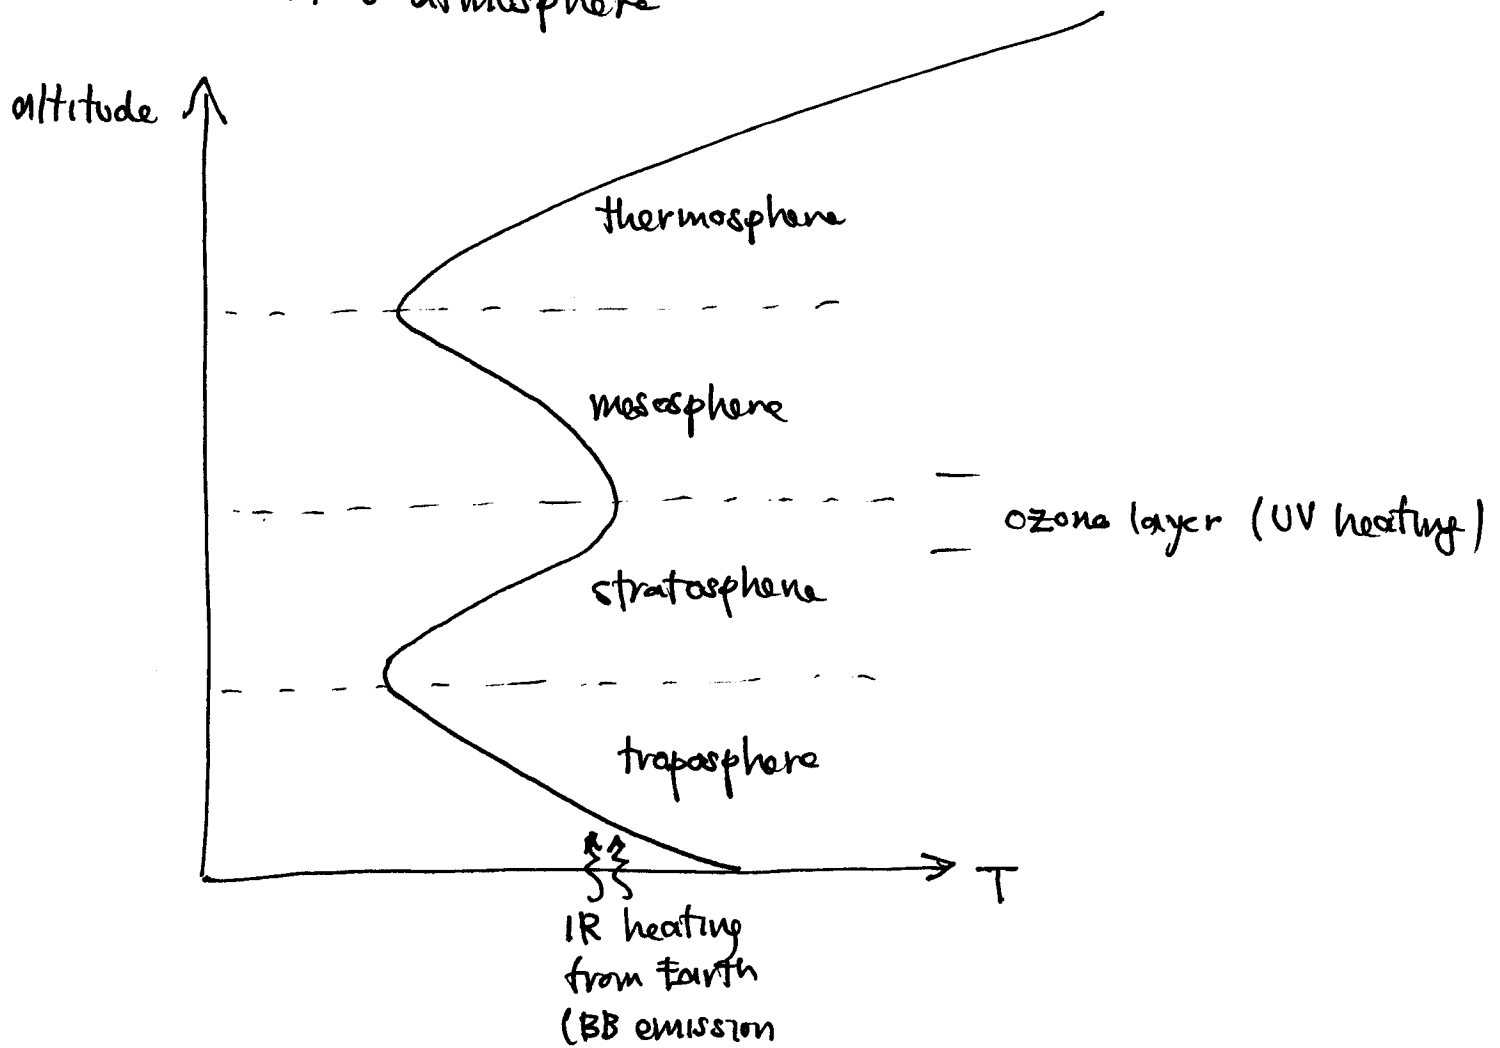 atmosphere
altitude
thermosphere
mesosphere
ozone layer (UV heating)
stratosphere
troposphere
T
IR heating
from Earth
(BB emission